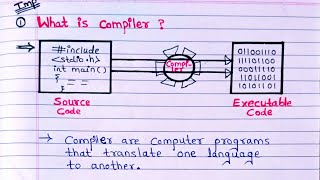 Imp
① What is Compiler?
#include
<stdio.h>
int main()
{ = =
}
Source
Code
Compi-
ler
01100110
11101100
00011110
11011001
10101010
Executable
Code
→ Compiler are computer programs
that translate one language
to another.